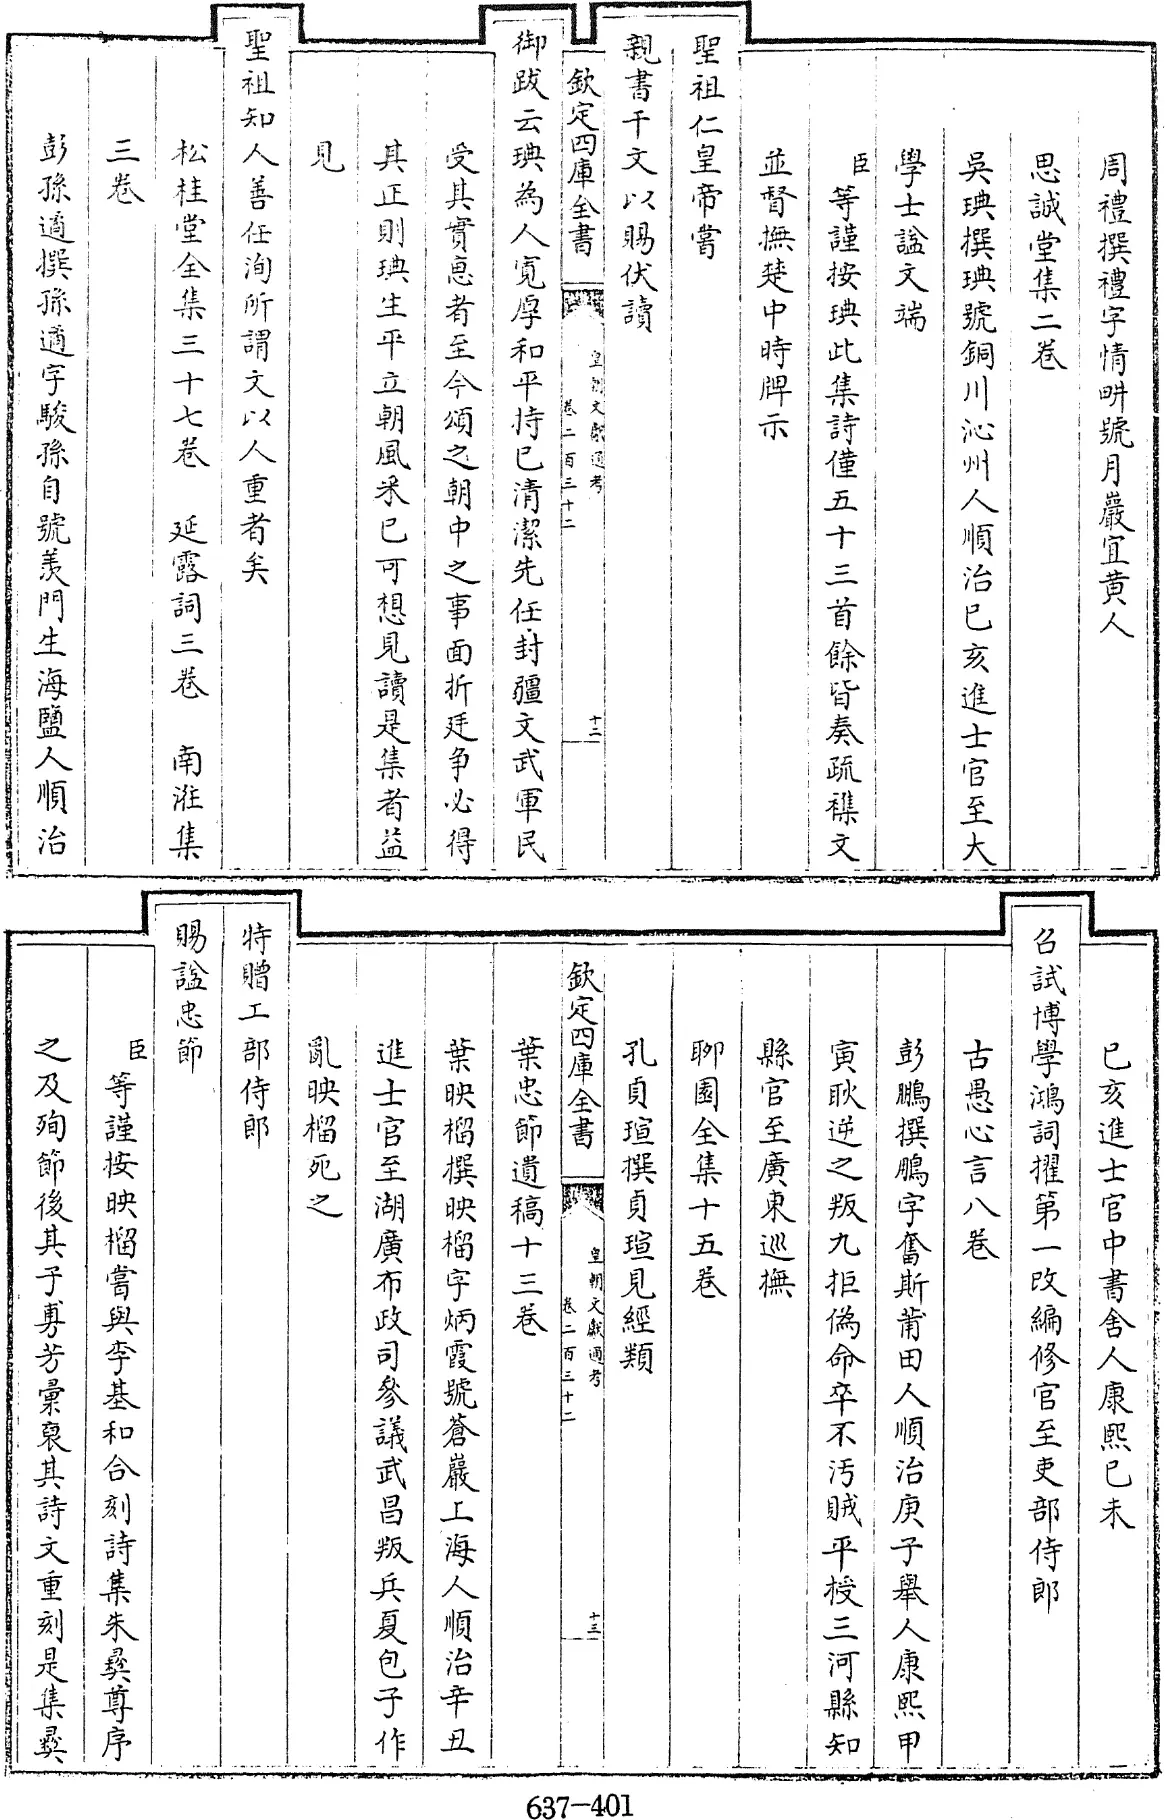 周禮撰禮字情畊號月巖宜黄人
思誠堂集二卷
吳琠撰琠號銅川沁州人順治己亥進士官至大
學士諡文端
臣等謹按琠此集詩僅五十三首餘皆奏疏襍文
並督撫楚中時牌示
聖祖仁皇帝嘗
親書千文以賜伏讀
欽定四庫全書
皇朝文獻通考
卷二百三十二
十二
御跋云琠為人寬厚和平持己清潔先任封疆文武軍民
受其實惠者至今頌之朝中之事面折廷争必得
其正則琠生平立朝風采已可想見讀是集者益
見
聖祖知人善任洵所謂文以人重者矣
松桂堂全集三十七卷　延露詞三卷　南淮集
三卷
彭孫遹撰孫遹字駿孫自號羨門生海鹽人順治
己亥進士官中書舍人康熙己未
召試博學鴻詞擢第一改編修官至吏部侍郎
古愚心言八卷
彭鵬撰鵬字奮斯莆田人順治庚子舉人康熙甲
寅耿逆之叛九拒偽命卒不汚賊平授三河縣知
縣官至廣東巡撫
聊園全集十五卷
孔貞瑄撰貞瑄見經類
欽定四庫全書
皇朝文獻通考
卷二百三十二
十三
葉忠節遺稿十三卷
葉映榴撰映榴字炳霞號蒼巖上海人順治辛丑
進士官至湖廣布政司參議武昌叛兵夏包子作
亂映榴死之
特贈工部侍郎
賜諡忠節
臣等謹按映榴嘗與李基和合刻詩集朱彛尊序
之及殉節後其子旉芳彙裒其詩文重刻是集彛
637-401